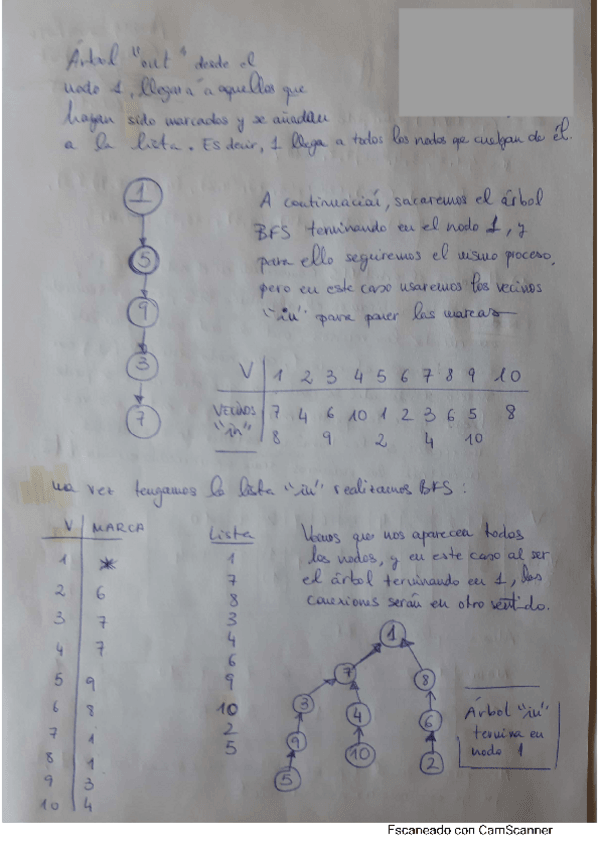 Árbol "out" desde el
nodo 1, llegará a aquellos que
hayan sido marcados y se añadan
a la lista. Es decir, 1 llega a todos los nodos que cuelgan de él.
1
5
9
3
7
A continuación, sacaremos el árbol
BFS terminando en el nodo 1, y
para ello seguiremos el mismo proceso,
pero en este caso usaremos los vecinos
"in" para poner las marcas
V 1 2 3 4 5 6 7 8 9 10
VECINOS 7 4 6 10 1 2 3 6 5 8
"in" 8 9 2 4 10
na vez tengamos la lista "in" realizamos BFS:
V MARCA
1 *
2 6
3 7
4 7
5 9
6 8
7 1
8 1
9 3
10 4
Lista
1
7
8
3
4
6
9
10
2
5
Vemos que nos aparecen todos
los nodos, y en este caso al ser
el árbol terminando en 1, las
conexiones serán en otro sentido.
1
7 8
3 4 6
9 10 2
5
Árbol "in"
termina en
nodo 1
Escaneado con CamScanner